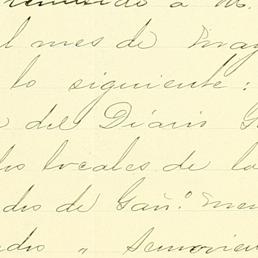 a M.
l mes de May
lo siguiente:
del Diario G
los locales de la
dos de Gan.º men
" Semovien